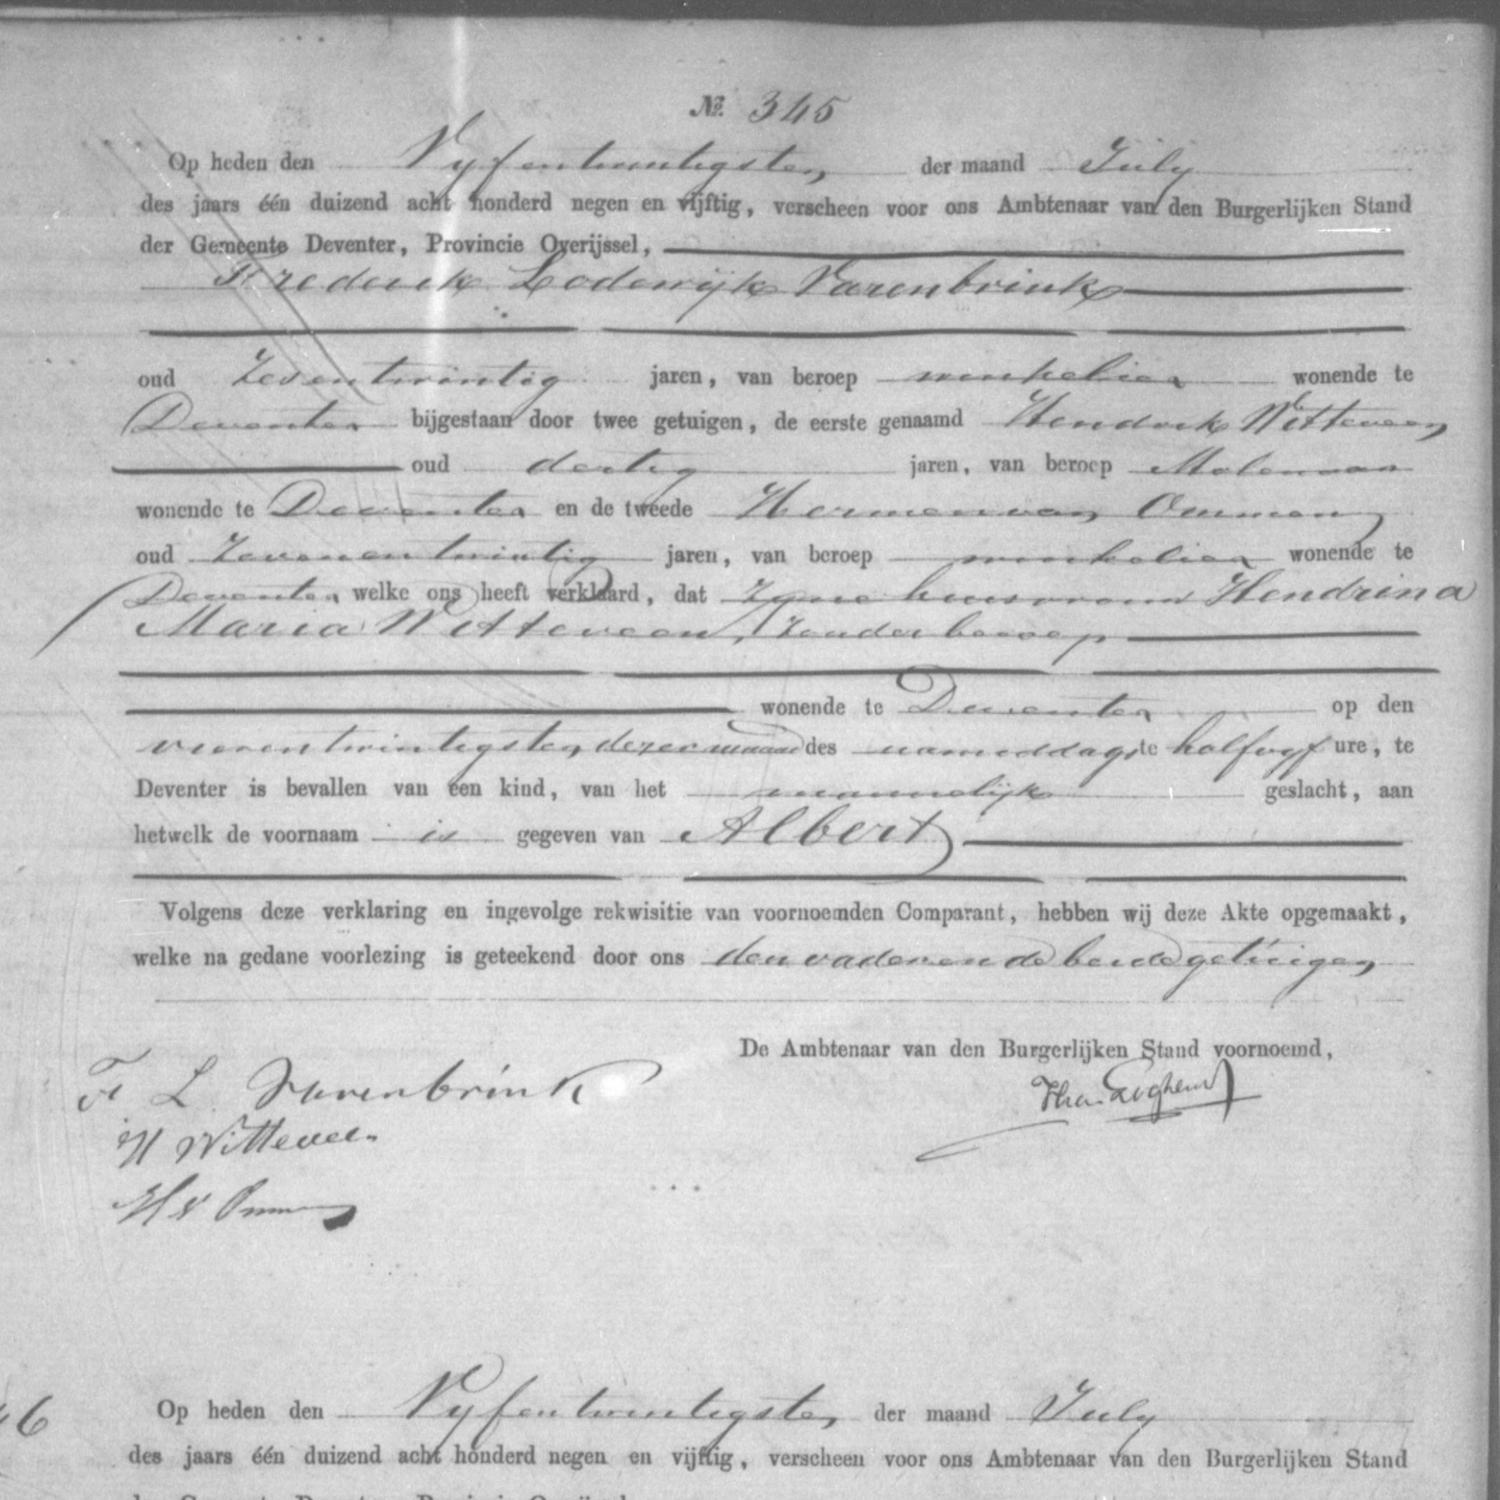 № 345
Op heden den Vyfentwintigsten der maand July
des jaars één duizend acht honderd negen en vijftig, verscheen voor ons Ambtenaar van den Burgerlijken Stand
der Gemeente Deventer, Provincie Overijssel,
Frederik Lodewijk Varenbrink
oud Zevenentwintig jaren, van beroep winkelier wonende te
Deventer bijgestaan door twee getuigen, de eerste genaamd Hendrik Witteveen
oud dertig jaren, van beroep Molenaar
wonende te Deventer en de tweede Hermen van Ommen
oud Zevenentwintig jaren, van beroep winkelier wonende te
Deventer welke ons heeft verklaard, dat Zyne huisvrouw Hendrina
Maria Witteveen, Zonder beroep
wonende te Deventer op den
vierentwintigsten dezer maand des namiddags te half vyf ure, te
Deventer is bevallen van een kind, van het mannelijk geslacht, aan
hetwelk de voornaam is gegeven van Albert
Volgens deze verklaring en ingevolge rekwisitie van voornoemden Comparant, hebben wij deze Akte opgemaakt,
welke na gedane voorlezing is geteekend door ons den vader en de beide getuigen
De Ambtenaar van den Burgerlijken Stand voornoemd,
F L Varenbrink
H Witteveen
H v Ommen
46 Op heden den Vyfentwintigsten der maand July
des jaars één duizend acht honderd negen en vijftig, verscheen voor ons Ambtenaar van den Burgerlijken Stand